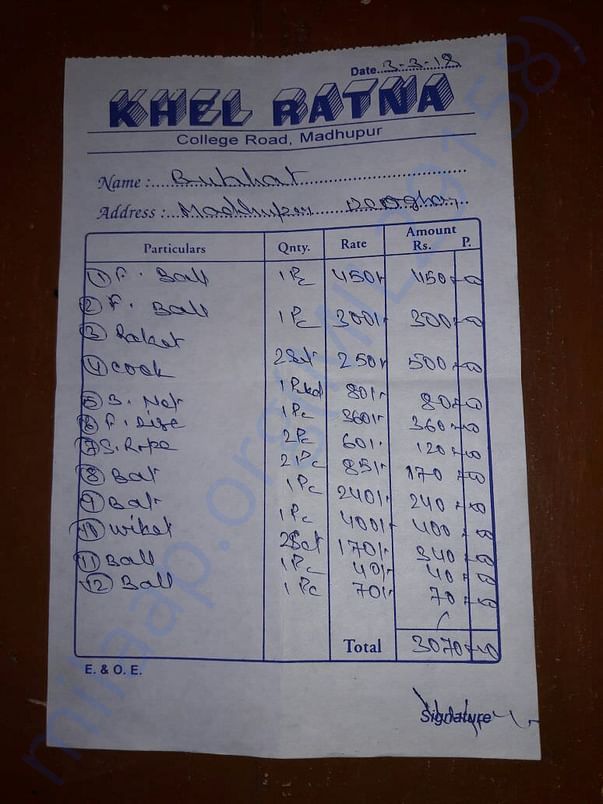 Date 3-3-18
KHEL RATNA
College Road, Madhupur
Name : Bubhat
Address : Madhupur Deoghar
Particulars Qnty. Rate Amount Rs. P.
① F. Ball 1 Pc 450/- 450-00
② F. Ball 1 Pc 300/- 300-00
③ Raket 2 Set 250/- 500-00
④ Cook 1 80/- 80-00
⑤ B. Net 1 Pc 360/- 360-00
⑥ F. 2 Pc 60/- 120-00
⑦ S. Rope 2 Pc 85/- 170-00
⑧ Bat 1 Pc 240/- 240-00
⑨ Bat 1 Pc 400/- 400-00
⑩ Wiket 2 Set 170/- 340-00
⑪ Ball 1 Pc 40/- 40-00
⑫ Ball 1 Pc 70/- 70-00
Total 3070-00
E. & O. E.
Signature